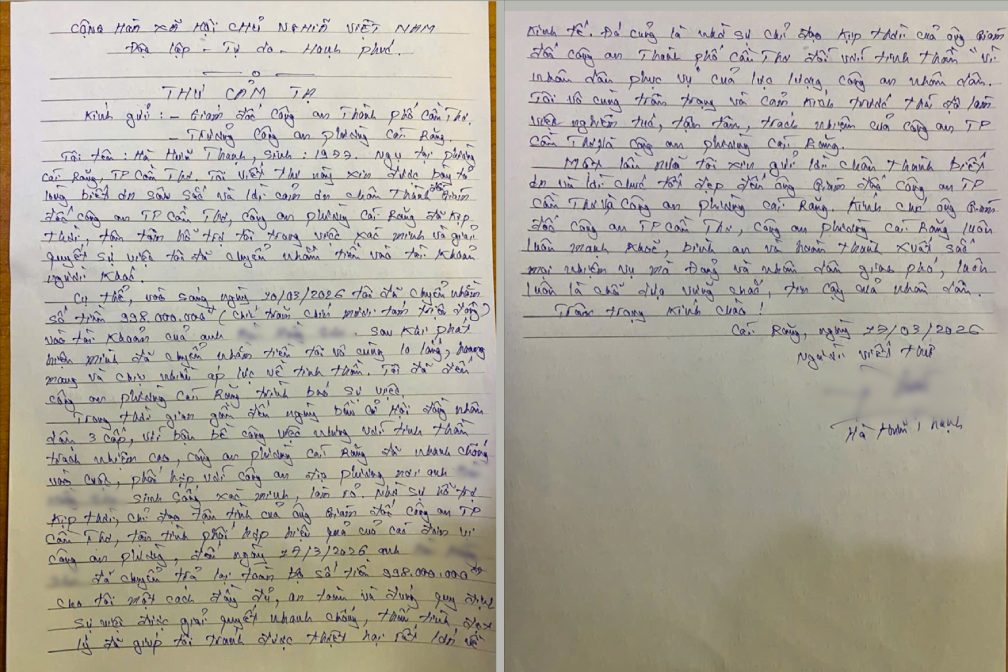 CỘNG HÒA XÃ HỘI CHỦ NGHĨA VIỆT NAM
Độc lập - Tự do - Hạnh phúc
THƯ CẢM TẠ
Kính gửi: - Giám đốc công an Thành phố Cần Thơ.
- Trưởng Công an phường Cái Răng.
Tôi tên: Hà Hữu Thạnh, sinh: 1977. Ngụ tại phường
Cái Răng, TP Cần Thơ. Tôi viết thư này xin được bày tỏ
lòng biết ơn sâu sắc và lời cảm ơn chân thành đến Giám
đốc công an TP Cần Thơ, công an phường Cái Răng đã kịp
thời, tận tâm hỗ trợ tôi trong việc xác minh và giải
quyết sự việc tôi đã chuyển nhầm tiền vào tài khoản
người khác.
Cụ thể, vào sáng ngày 10/03/2026 tôi đã chuyển nhầm
số tiền 998.000.000đ (Chín trăm chín mươi tám triệu đồng)
vào tài khoản của anh
Sau khi phát
hiện mình đã chuyển nhầm tiền tôi vô cùng lo lắng, hoang
mang và chịu nhiều áp lực về tinh thần. Tôi đã đến
công an phường Cái Răng trình báo sự việc.
Trong thời gian gần đến ngày bầu cử Hội đồng nhân
dân 3 cấp, với bộn bề công việc nhưng với tinh thần
trách nhiệm cao, công an phường Cái Răng đã nhanh chóng
vào cuộc, phối hợp với công an địa phương nơi anh
sinh sống xác minh, làm rõ. Nhờ sự hỗ trợ
kịp thời, chỉ đạo tận tình của ông Giám đốc công an TP
Cần Thơ, tận tình phối hợp hiệu quả của các đơn vị
công an phường, đến ngày /3/2026 anh
đã chuyển trả lại toàn bộ số tiền 998.000.000đ
cho tôi một cách đầy đủ, an toàn và đúng quy định
Sự việc được giải quyết nhanh chóng, thấu tình đạt
lý đã giúp tôi tránh được thiệt hại rất lớn về
kinh tế. Đó cũng là nhờ sự chỉ đạo kịp thời của ông Giám
đốc công an Thành phố Cần Thơ đối với tinh thần "vì
nhân dân phục vụ" của lực lượng công an nhân dân.
Tôi vô cùng trân trọng và cảm kích trước thái độ làm
việc nghiêm túc, tận tâm, trách nhiệm của công an TP
Cần Thơ và công an phường Cái Răng.
Một lần nữa tôi xin gửi lời chân thành biết
ơn và lời chúc tốt đẹp đến ông Giám đốc Công an TP
Cần Thơ và Công an phường Cái Răng. Kính chúc ông Giám
đốc công an TP Cần Thơ, công an phường Cái Răng luôn
luôn mạnh khỏe, bình an và hoàn thành xuất sắc
mọi nhiệm vụ mà Đảng và nhân dân giao phó, luôn
luôn là chỗ dựa vững chắc, tin cậy của nhân dân.
Trân trọng kính chào!
Cái Răng, ngày /03/2026
Người viết thư
Hà Hữu Thạnh